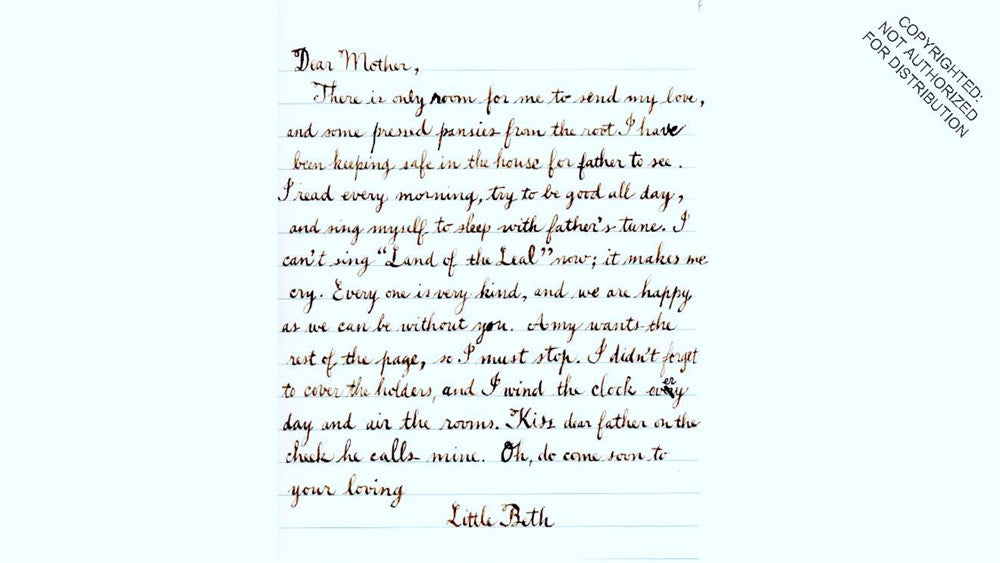 Dear Mother,
There is only room for me to send my love,
and some pressed pansies from the root I have
been keeping safe in the house for father to see.
I read every morning, try to be good all day,
and sing myself to sleep with father's tune. I
can't sing "Land of the Leal" now; it makes me
cry. Every one is very kind, and we are happy
as we can be without you. Amy wants the
rest of the page, so I must stop. I didn't forget
to cover the holders, and I wind the clock every
day and air the rooms. Kiss dear father on the
cheek he calls mine. Oh, do come soon to
your loving
Little Beth
COPYRIGHTED:
NOT AUTHORIZED
FOR DISTRIBUTION